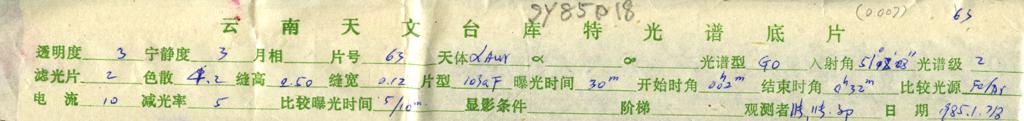 gy85018 (0.007) 63
云南天文台库特光谱底片
透明度 3 宁静度 3 月相 片号 63 天体 αAur α 光谱型 G0 入射角 光谱级 2
滤光片 2 色散 4.2 缝高 2.50 缝宽 0.12 片型 103aF 曝光时间 30m 开始时角 0h02m 结束时角 0h32m 比较光源 Fe/Ar
电流 10 减光率 5 比较曝光时间 5/10m 显影条件 阶梯 观测者 日期 1985.1.7/8